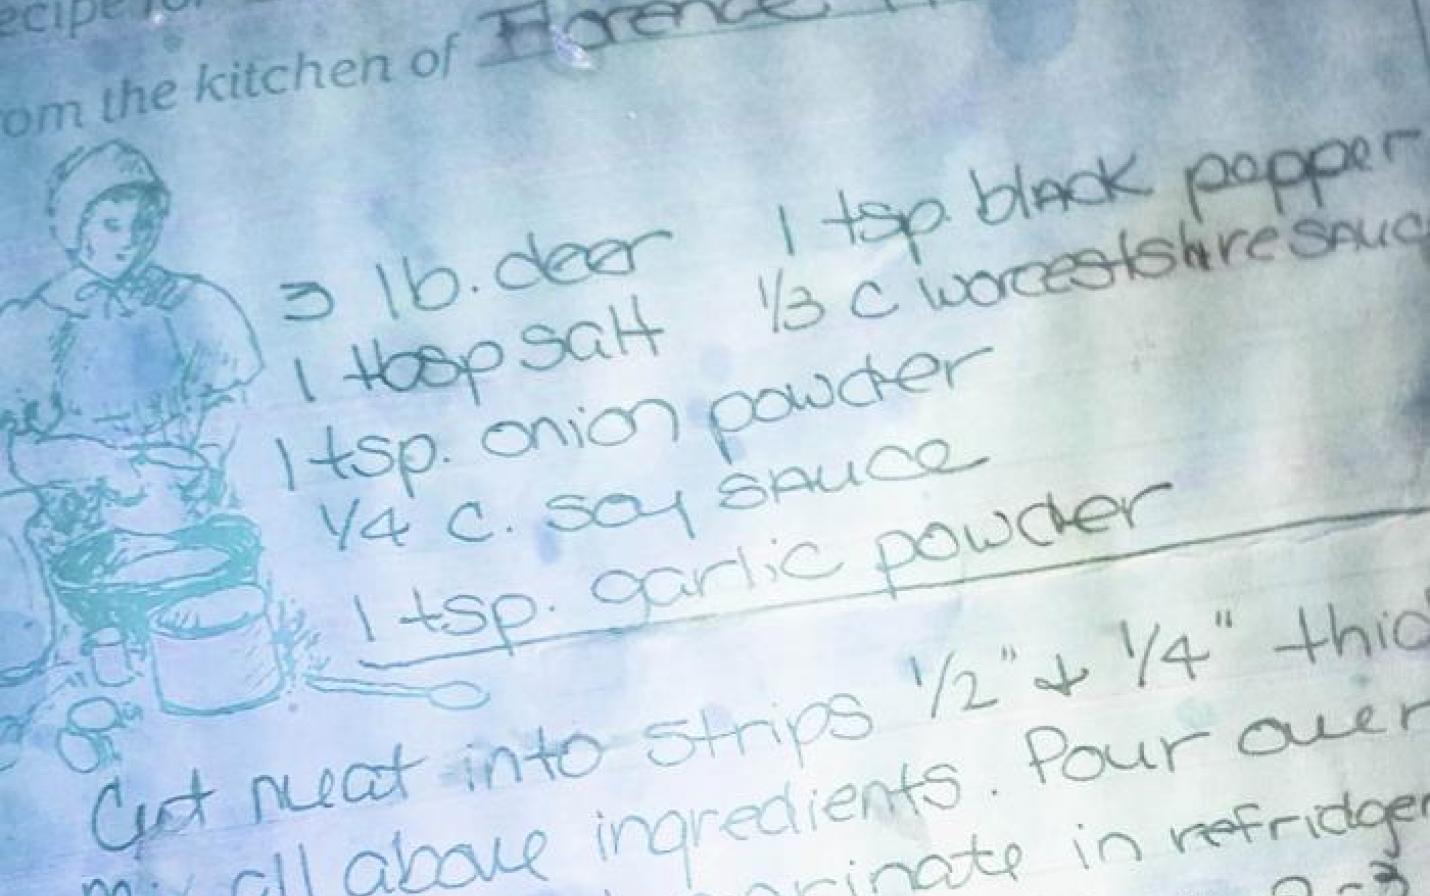 ecipe for
om the kitchen of Florence
3 lb. deer 1 tsp. black pepper
1 tbsp salt 1/3 c worcestshire sauc
1 tsp. onion powder
1/4 c. soy sauce
1 tsp. garlic powder
Cut meat into strips 1/2" + 1/4" thic
mix all above ingredients. Pour over
marinate in refridger
2-3